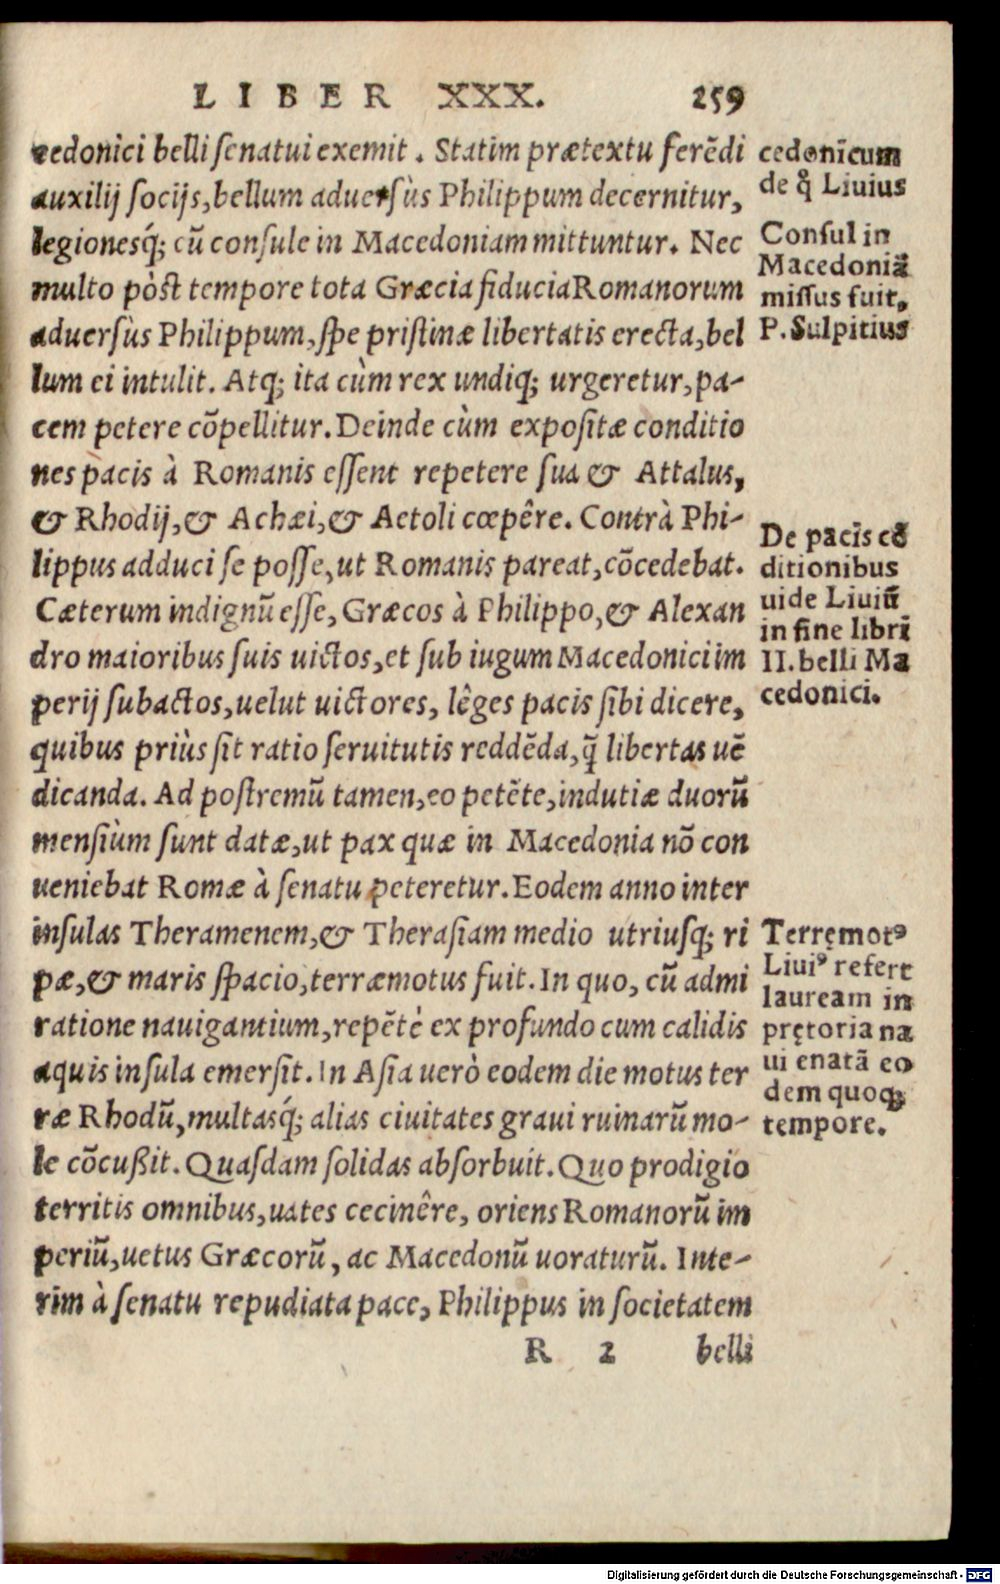 LIBER XXX. 259
cedonici belli ſenatui exemit. Statim prætextu ferẽdi
auxilij ſocijs, bellum aduerſùs Philippum decernitur,
legionesq́; cũ conſule in Macedoniam mittuntur. Nec
multo pòſt tempore tota Græcia fiducia Romanorum
aduerſùs Philippum, ſpe priſtinæ libertatis erecta, bel
lum ei intulit. Atq; ita cùm rex undiq; urgeretur, pa-
cem petere cõpellitur. Deinde cùm expoſitæ conditio
nes pacis à Romanis eſſent repetere ſua & Attalus,
& Rhodij, & Achæi, & Aetoli cœpêre. Contrà Phi-
lippus adduci ſe poſſe, ut Romanis pareat, cõcedebat.
Cæterum indignũ eſſe, Græcos à Philippo, & Alexan
dro maioribus ſuis uictos, et ſub iugum Macedonici im
perij ſubactos, uelut uictores, lêges pacis ſibi dicere,
quibus priùs ſit ratio ſeruitutis reddẽda, q̃ libertas uẽ
dicanda. Ad poſtremũ tamen, eo petẽte, indutiæ duorũ
menſiùm ſunt datæ, ut pax quæ in Macedonia nõ con
ueniebat Romæ à ſenatu peteretur. Eodem anno inter
inſulas Theramenem, & Theraſiam medio utriuſq; ri
pæ, & maris ſpacio, terræmotus fuit. In quo, cũ admi
ratione nauigantium, repẽtè ex profundo cum calidis
aquis inſula emerſit. In Aſia uerò eodem die motus ter
ræ Rhodũ, multasq́; alias ciuitates graui ruinarũ mo-
le cõcußit. Quaſdam ſolidas abſorbuit. Quo prodigio
territis omnibus, uates cecinêre, oriens Romanorũ im
periũ, uetus Græcorũ, ac Macedonũ uoraturũ. Inte-
rim à ſenatu repudiata pace, Philippus in ſocietatem
R 2 belli
cedonicum
de q̊ Liuius
Conſul in
Macedoniã
miſſus fuit,
P. Sulpitius
De pacis cõ
ditionibus
uide Liuiũ
in fine libri
II. belli Ma
cedonici.
Terręmotꝰ
Liuiꝰ refert
lauream in
prętoria na
ui enatã eo
dem quoq;
tempore.
Digitalisierung gefördert durch die Deutsche Forschungsgemeinschaft - DFG